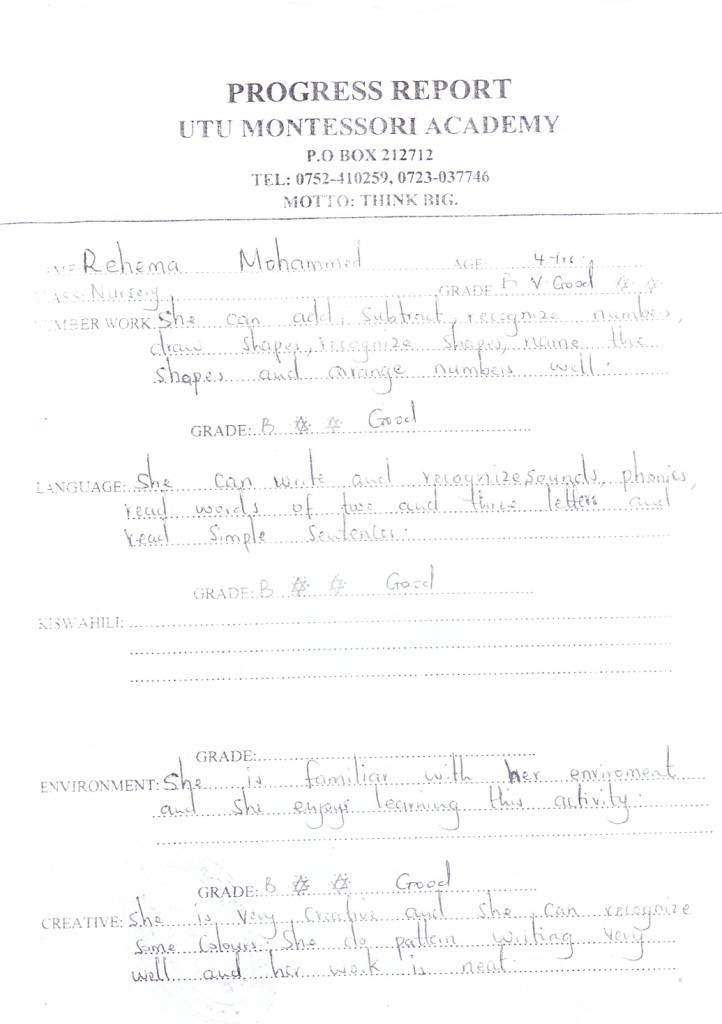 PROGRESS REPORT
UTU MONTESSORI ACADEMY
P.O BOX 212712
TEL: 0752-410259, 0723-037746
MOTTO: THINK BIG.
Rehema Mohammed AGE: 4
Nursery GRADE B V Good
MBER WORK: She can add, Subtract, recognize numbers,
draw shapes, recognize shapes, name the
shapes and arrange numbers well.
GRADE: B ✡ ✡ Good
LANGUAGE: She can write and recognize sounds, phonics,
read words of two and three letters and
read Simple Sentences.
GRADE: B ✡ ✡ Good
KISWAHILI:
GRADE:
ENVIRONMENT: She is familiar with her enviroment
and She enjoys learning this activity.
GRADE: B ✡ ✡ Good
CREATIVE: She is Very Creative and She Can recognize
Some Colours. She do pattern writing Very
well and her work is neat.